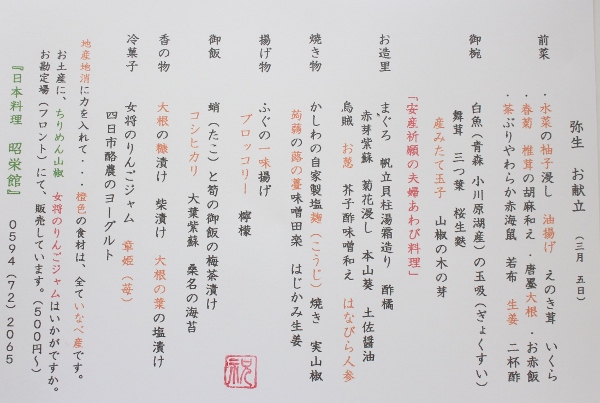 弥生　お献立　（三月　五日）
前菜　・水菜の柚子浸し　油揚げ　えのき茸　いくら
・春菊　椎茸の胡麻和え　・唐墨大根　・お赤飯
・茶ぶりやわらか赤海鼠　若布　生姜　二杯酢
御椀　白魚（青森　小川原湖産）の玉吸（ぎょくすい）
舞茸　三つ葉　桜生麩
産みたて玉子　山椒の木の芽
「安産祈願の夫婦あわび料理」
お造里　まぐろ　帆立貝柱湯霜造り　酢橘
赤芽紫蘇　菊花浸し　本山葵　土佐醤油
烏賊　お葱　芥子酢味噌和え　はなびら人参
焼き物　かしわの自家製塩麹（こうじ）焼き　実山椒
蒟蒻の蕗の薹味噌田楽　はじかみ生姜
揚げ物　ふぐの一味揚げ
ブロッコリー　檸檬
御飯　蛸（たこ）と筍の御飯の梅茶漬け
コシヒカリ　大葉紫蘇　桑名の海苔
香の物　大根の糠漬け　柴漬け　大根の葉の塩漬け
冷菓子　女将のりんごジャム　章姫（苺）
四日市酪農のヨーグルト
地産地消に力を入れて・・・橙色の食材は、全ていなべ産です。
お土産に、ちりめん山椒　女将のりんごジャムはいかがですか。
お勘定場（フロント）にて、販売しています。（５００円～）
『日本料理　昭栄館』　０５９４（７２）２０６５
祝